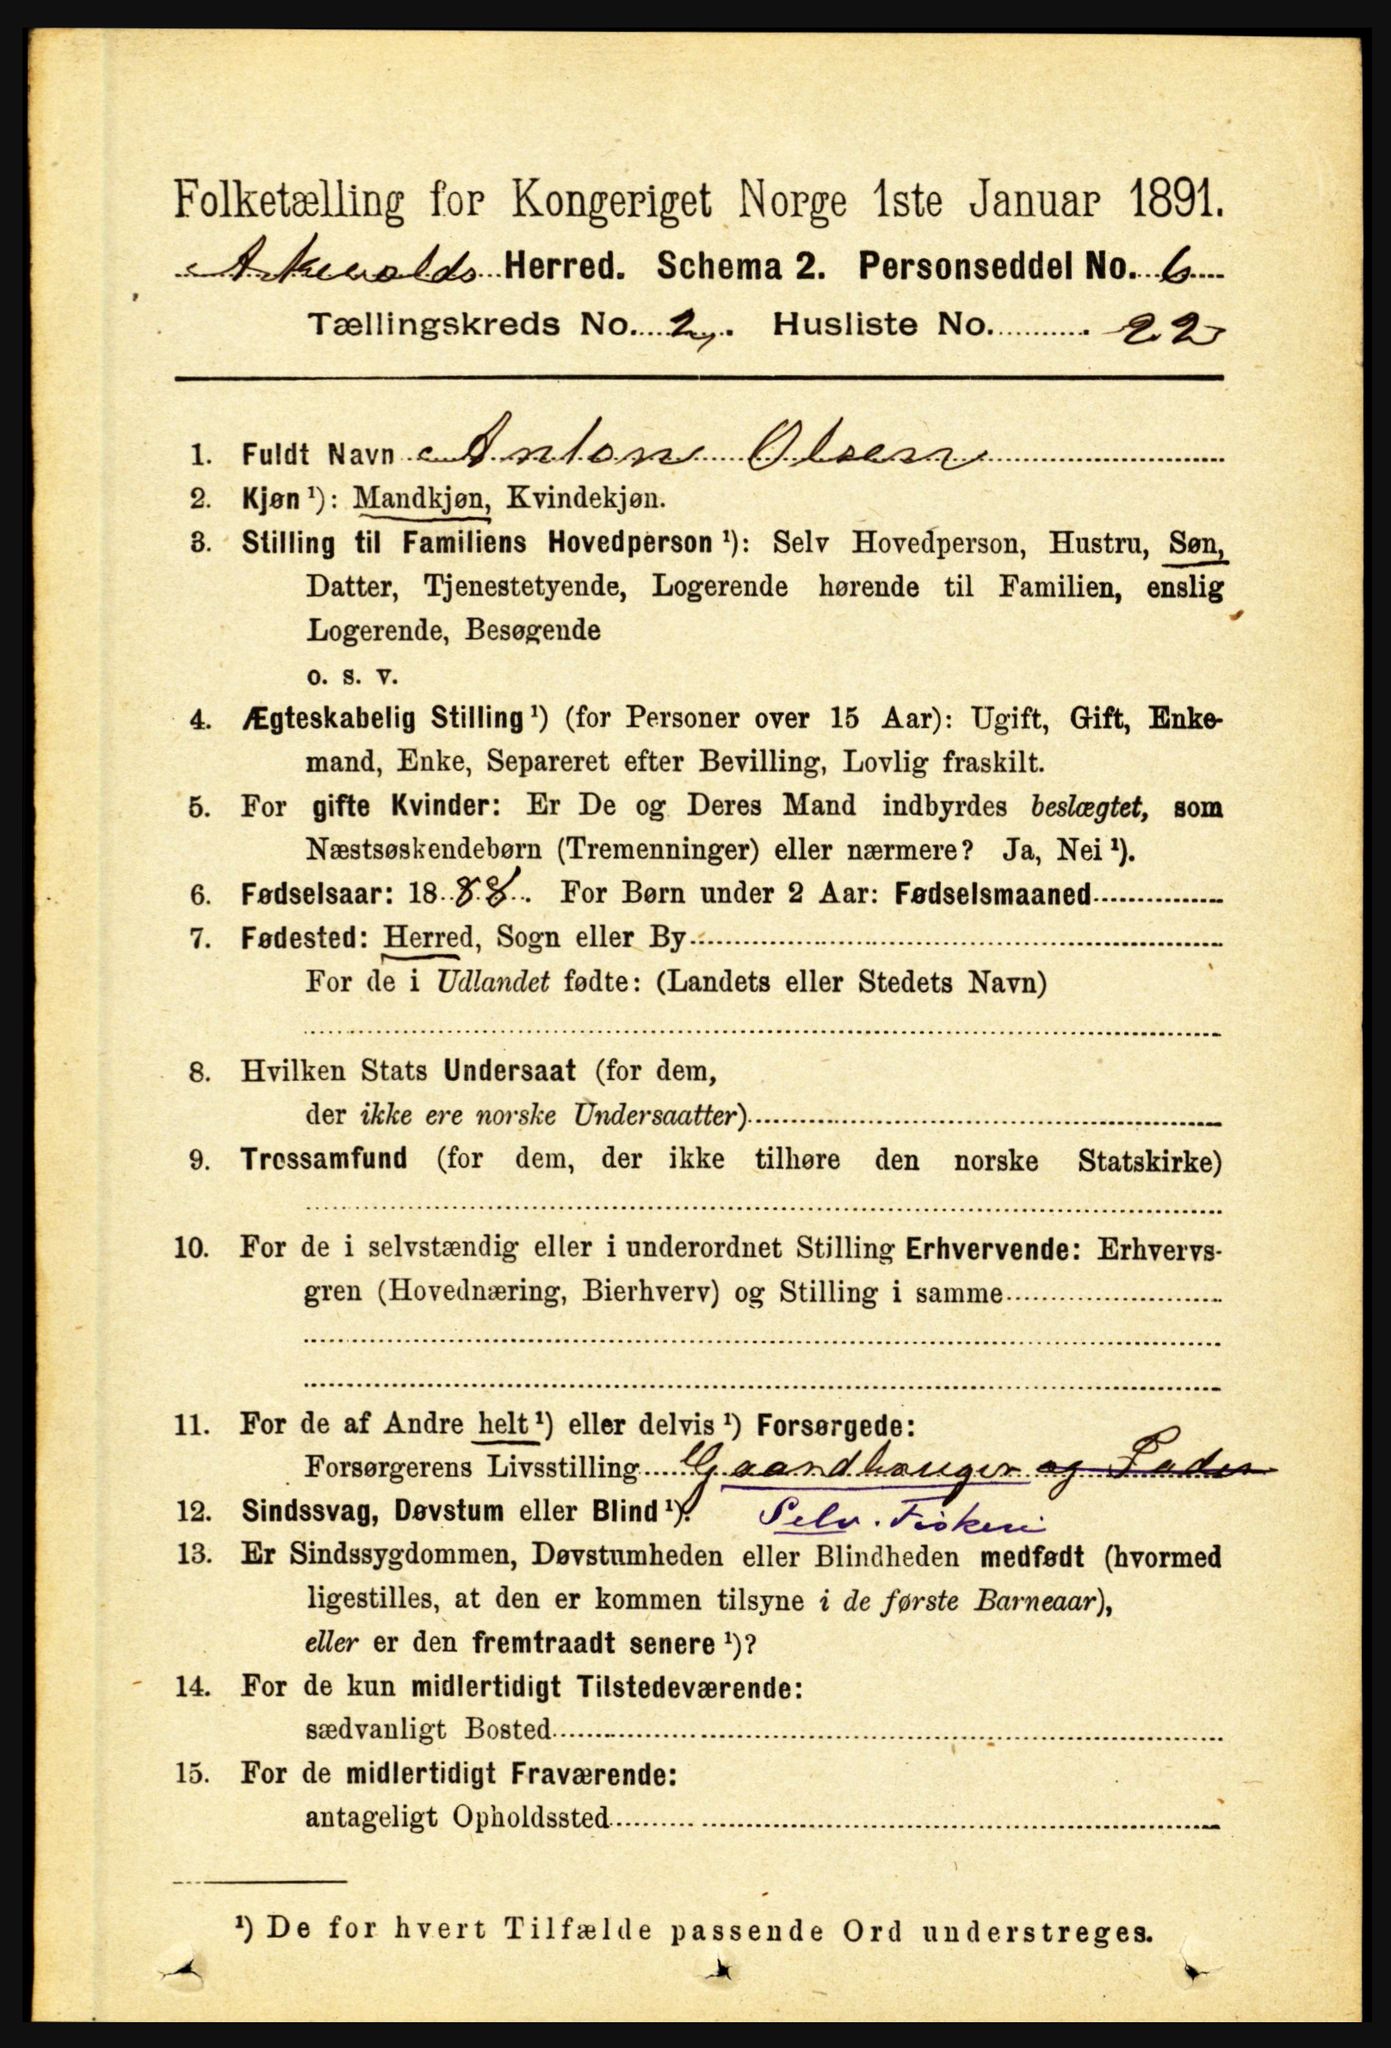 Folketælling for Kongeriget Norge 1ste Januar 1891.
Askevolds Herred. Schema 2. Personseddel No. 6
Tællingskreds No. 2. Husliste No. 22
1. Fuldt Navn Anton Olsen
2. Kjøn ¹): Mandkjøn, Kvindekjøn.
3. Stilling til Familiens Hovedperson ¹): Selv Hovedperson, Hustru, Søn,
Datter, Tjenestetyende, Logerende hørende til Familien, enslig
Logerende, Besøgende
o. s. v.
4. Ægteskabelig Stilling ¹) (for Personer over 15 Aar): Ugift, Gift, Enke-
mand, Enke, Separeret efter Bevilling, Lovlig fraskilt.
5. For gifte Kvinder: Er De og Deres Mand indbyrdes beslægtet, som
Næstsøskendebørn (Tremenninger) eller nærmere? Ja, Nei ¹).
6. Fødselsaar: 1888. For Børn under 2 Aar: Fødselsmaaned
7. Fødested: Herred, Sogn eller By
For de i Udlandet fødte: (Landets eller Stedets Navn)
8. Hvilken Stats Undersaat (for dem,
der ikke ere norske Undersaatter)
9. Trossamfund (for dem, der ikke tilhøre den norske Statskirke)
10. For de i selvstændig eller i underordnet Stilling Erhvervende: Erhvervs-
gren (Hovednæring, Bierhverv) og Stilling i samme
11. For de af Andre helt ¹) eller delvis ¹) Forsørgede:
Forsørgerens Livsstilling Gaardbruger og Fader
12. Sindssvag, Døvstum eller Blind ¹). Selv. Fiskeri
13. Er Sindssygdommen, Døvstumheden eller Blindheden medfødt (hvormed
ligestilles, at den er kommen tilsyne i de første Barneaar),
eller er den fremtraadt senere ¹)?
14. For de kun midlertidigt Tilstedeværende:
sædvanligt Bosted
15. For de midlertidigt Fraværende:
antageligt Opholdssted
¹) De for hvert Tilfælde passende Ord understreges.